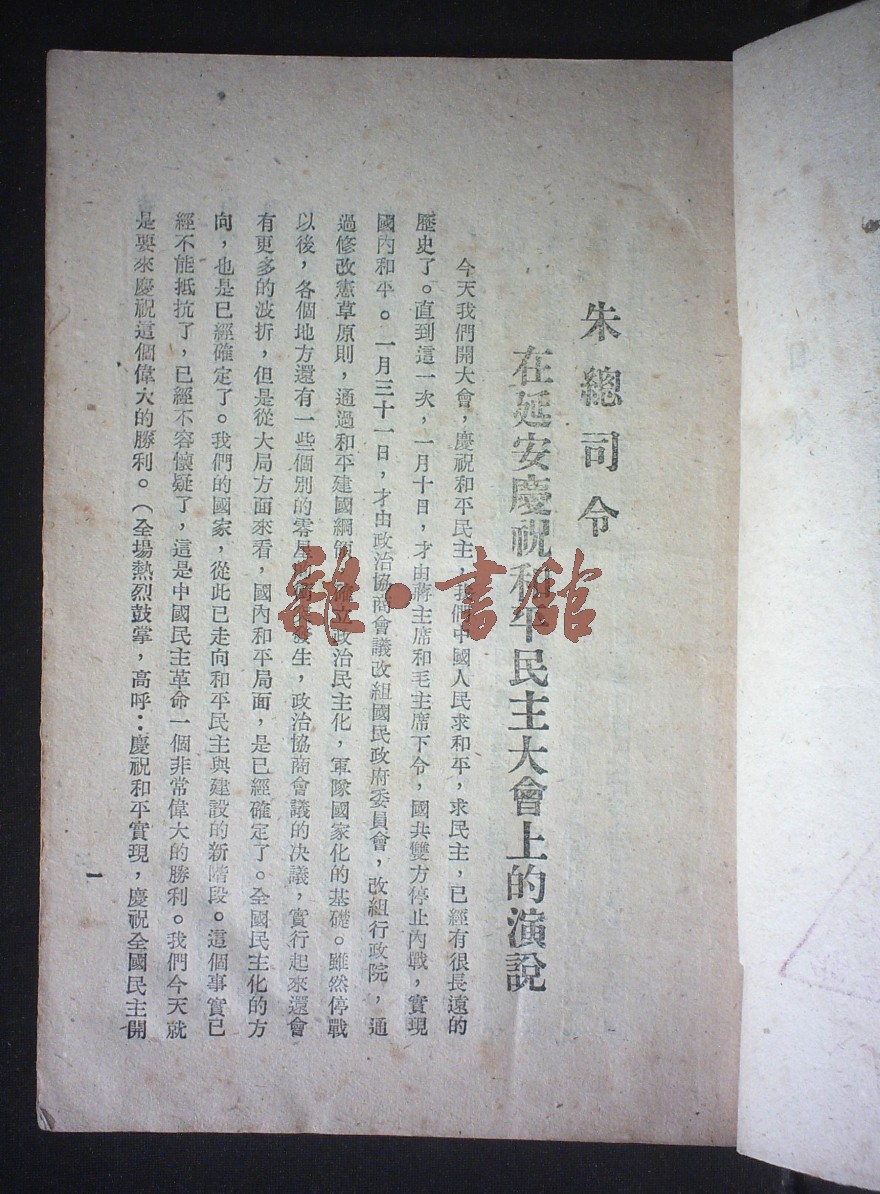 朱總司令
在延安慶祝和平民主大會上的演說
今天我們開大會，慶祝和平民主，我們中國人民求和平，求民主，已經有很長遠的
歷史了。直到這一次，一月十日，才由蔣主席和毛主席下令，國共雙方停止內戰，實現
國內和平。一月三十一日，才由政治協商會議改組國民政府委員會，改組行政院，通
過修改憲草原則，通過和平建國綱領，確立政治民主化，軍隊國家化的基礎。雖然停戰
以後，各個地方還有一些個別的零星發生，政治協商會議的决議，實行起來還會
有更多的波折，但是從大局方面來看，國內和平局面，是已經確定了。全國民主化的方
向，也是已經確定了。我們的國家，從此已走向和平民主與建設的新階段。這個事實已
經不能抵抗了，已經不容懷疑了，這是中國民主革命一個非常偉大的勝利。我們今天就
是要來慶祝這個偉大的勝利。（全場熱烈鼓掌，高呼：慶祝和平實現，慶祝全國民主開
一
雜·書館